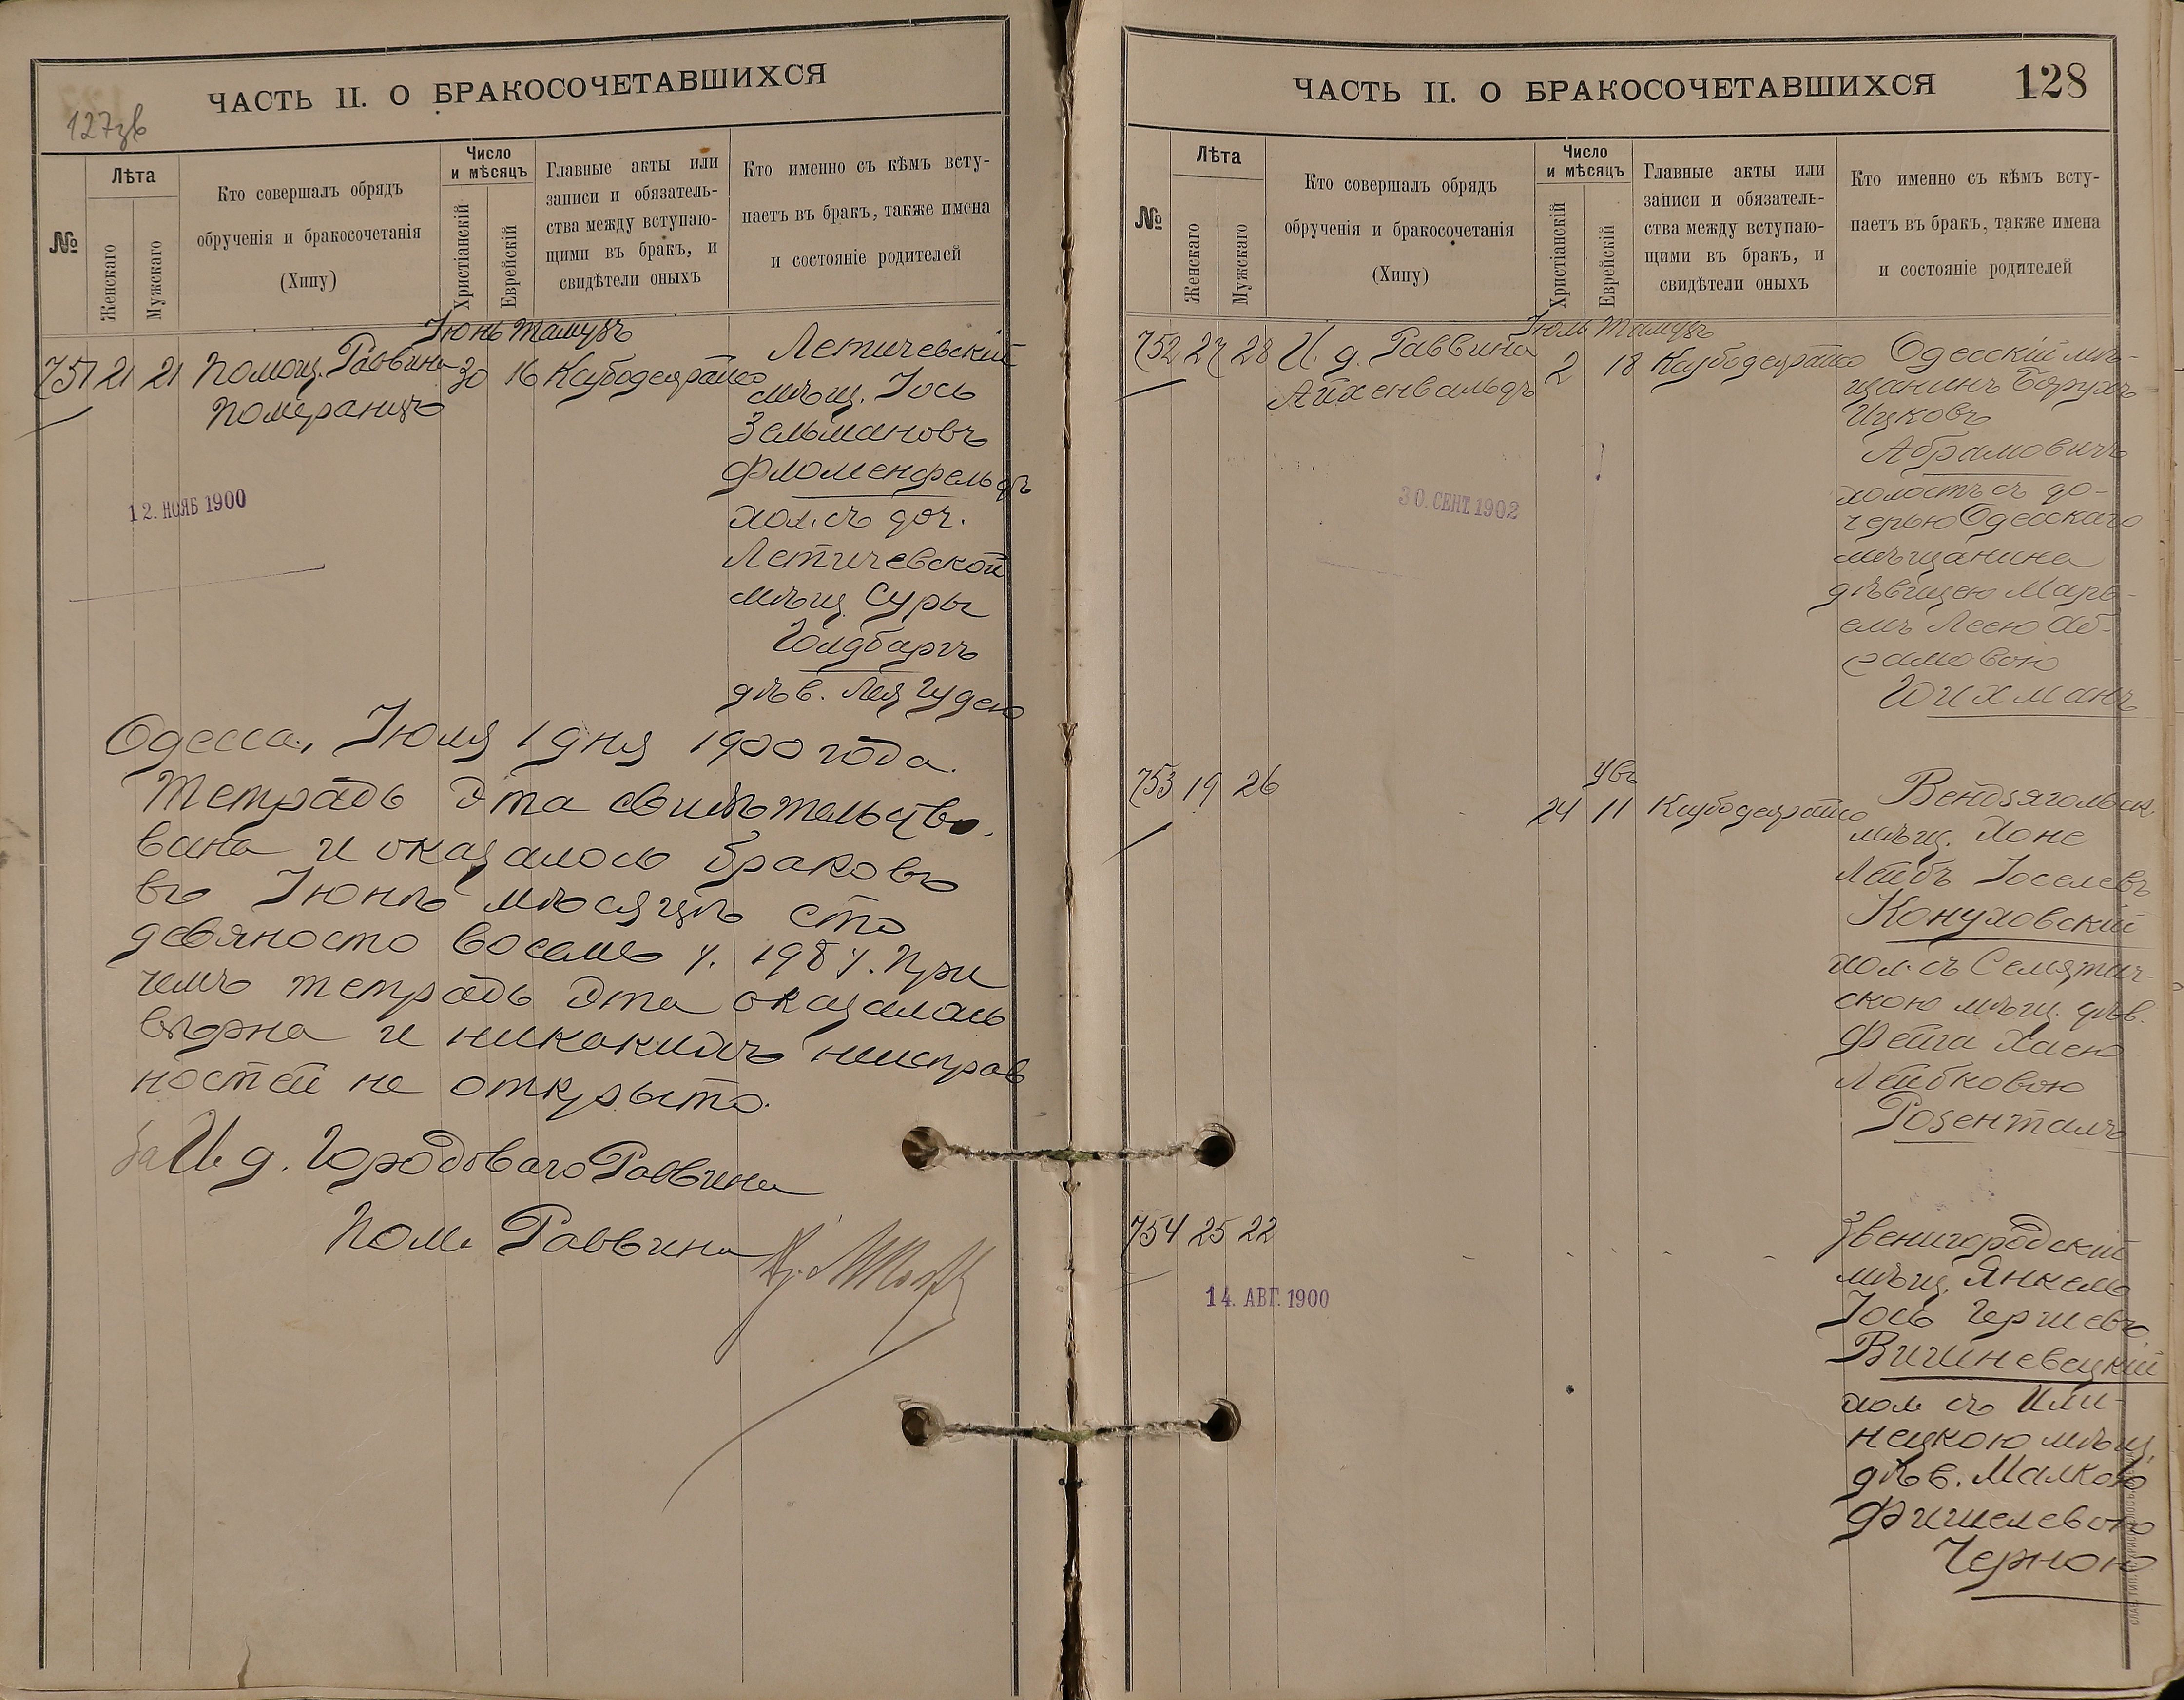 ЧАСТЬ II. О БРАКОСОЧЕТАВШИХСЯ
127зв
№
Лѣта
Женскаго
Мужскаго
Кто совершалъ обрядъ
обрученія и бракосочетанія
(Хипу)
Число
и мѣсяцъ
Христіанскій
Еврейскій
Главные акты или
записи и обязатель-
ства между вступаю-
щими въ бракъ, и
свидѣтели оныхъ
Кто именно съ кѣмъ всту-
паетъ въ бракъ, также имена
и состояніе родителей
Іюнь Тамузъ
751 21 21 Помощ. Раввина 30 16
Померанцъ
Летичевскій
мѣщ. Іось
Зельмановъ
Флюменфельдъ
хол. съ доч.
Летичевской
мѣщ. Суры
Голдбаргъ
дѣв. Лея Гудею
12. НОЯБ 1900
Одесса, Іюля 1 дня 1900 года.
Тетрадь эта свидѣтельство-
вана и оказалось браковъ
въ Іюнѣ мѣсяцѣ сто
девяносто восемь ч. 198 ч. При
чемъ тетрадь эта оказалась
вѣрна и никакихъ неисправ
ностей не открыто.
За И. д. Городоваго Раввина
Пом. Раввина
ЧАСТЬ II. О БРАКОСОЧЕТАВШИХСЯ
128
№
Лѣта
Женскаго
Мужскаго
Кто совершалъ обрядъ
обрученія и бракосочетанія
(Хипу)
Число
и мѣсяцъ
Христіанскій
Еврейскій
Главные акты или
записи и обязатель-
ства между вступаю-
щими въ бракъ, и
свидѣтели оныхъ
Кто именно съ кѣмъ всту-
паетъ въ бракъ, также имена
и состояніе родителей
Іюль Тамузъ
752 27 28 И. д. Раввина 2 18
Айхенвальдъ
Одесскій мѣ-
щанинъ Борухъ
Ицковъ
Абрамовичъ
холостъ съ до-
черью Одесскаго
мѣщанина
дѣвицею Марь-
емъ Леею Аб-
рамовою
Гойхманъ
30. СЕНТ. 1902
753 19 26 24 11
Вендзягольск.
мѣщ. Хоне
Лейбъ Іоселевъ
Конуховскій
хол. съ Семятич-
скою мѣщ. дѣв.
Фейга Хаею
Лейбковою
Розенталъ
754 25 22
14. АВГ. 1900
Звенигородскій
мѣщ. Янкель
Іось Гершевъ
Вишневецкій
хол. съ Или-
нецкою мѣщ.
дѣв. Малкою
Фишелевою
Черною